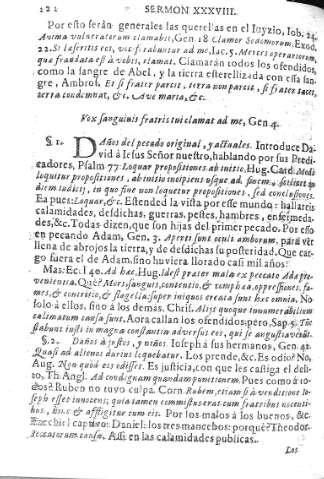 122 SERMON XXXVIII.
Por esto serán generales las querellas en el Iuyzio, Iob. 24.
Anima vulneratorum clamabit, Gen. 18 Clamor Sodomorum. Exod.
22. Si laeseritis eos, vociferabuntur ad me, Iac. 5. Merces operariorum,
quae fraudata est à vobis, clamat. Clamarán todos los ofendidos,
como la sangre de Abel, y la tierra esterelizada con essa san-
gre, Ambros. Et si frater parcit, terra non parcit, si frater tacet,
terra condemnat, &c. Ave maria, &c.
Vox sanguinis fratris tui clamat ad me, Gen 4.
§ 1. Daños del pecado original, y actuales. Introduce Da-
vid à Iesus Señor nuestro, hablando por sus Predi-
cadores, Psalm 77. Loquar propositiones ab initio, Hug. Card.
loquitur propositiones, ab initio incipiens usque ad
diem iudicij, in quo fine non loquetur propositiones, sed conclusiones.
Ea pues: Loquar, &c. Estended la vista por esse mundo: hallareis
calamidades, desdichas, guerras, pestes, hambres, enfermeda-
des, &c. Todas dizen, que son hijas del primer pecado. Por esso
en pecando Adam, Gen. 3. Aperti sunt oculi amborum, para ver
llena de abrojos la tierra, y de desdichas su posteridad. Que car-
go fuera el de Adam, sino huviera llorado casi mil años!
Mas: Ec. 40. Ad haec, Hug. Idest praeter mala ex peccato Adae pro-
venientia. Què? Mors, sanguis, contentio, & oppressiones, fa-
mes, & contritio, & flagella: super iniquos creata sunt haec omnia. No
solo à ellos, sino à los demàs, Chris. Alijs quoque
calamitatum causa sunt. Aora callan los ofendidos: pero, Sap. 5. Tunc
stabunt iusti in magna constantia adversus eos, qui se angustiaverunt.
§. 2. Daños à justos, y niños. Ioseph à sus hermanos, Gen. 42.
Quasi ad alienos durius loquebatur. Los prende, &c. Es odio? No,
Aug. Non quòd eos odisset. Es justicia, con que les castiga el deli-
to, Th. Angl. Ad condignam quandam punitionem. Pues como à to-
dos? Ruben no tuvo culpa. Corn. Rubem, etiam si à venditione Io-
seph esset innocens; quia tamen commistus erat cum fratribus nocenti-
bus, hinc & affligitur cum eis. Por los malos à los buenos, &c.
Ezechiel captivo: Daniel: los tres mancebos: porquè? Theodor.
Assi en las calamidades publicas.
Los